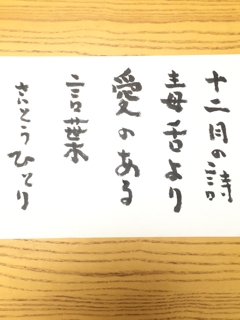 十二月の詩
毒舌より
愛のある
言葉
さいとうひとり